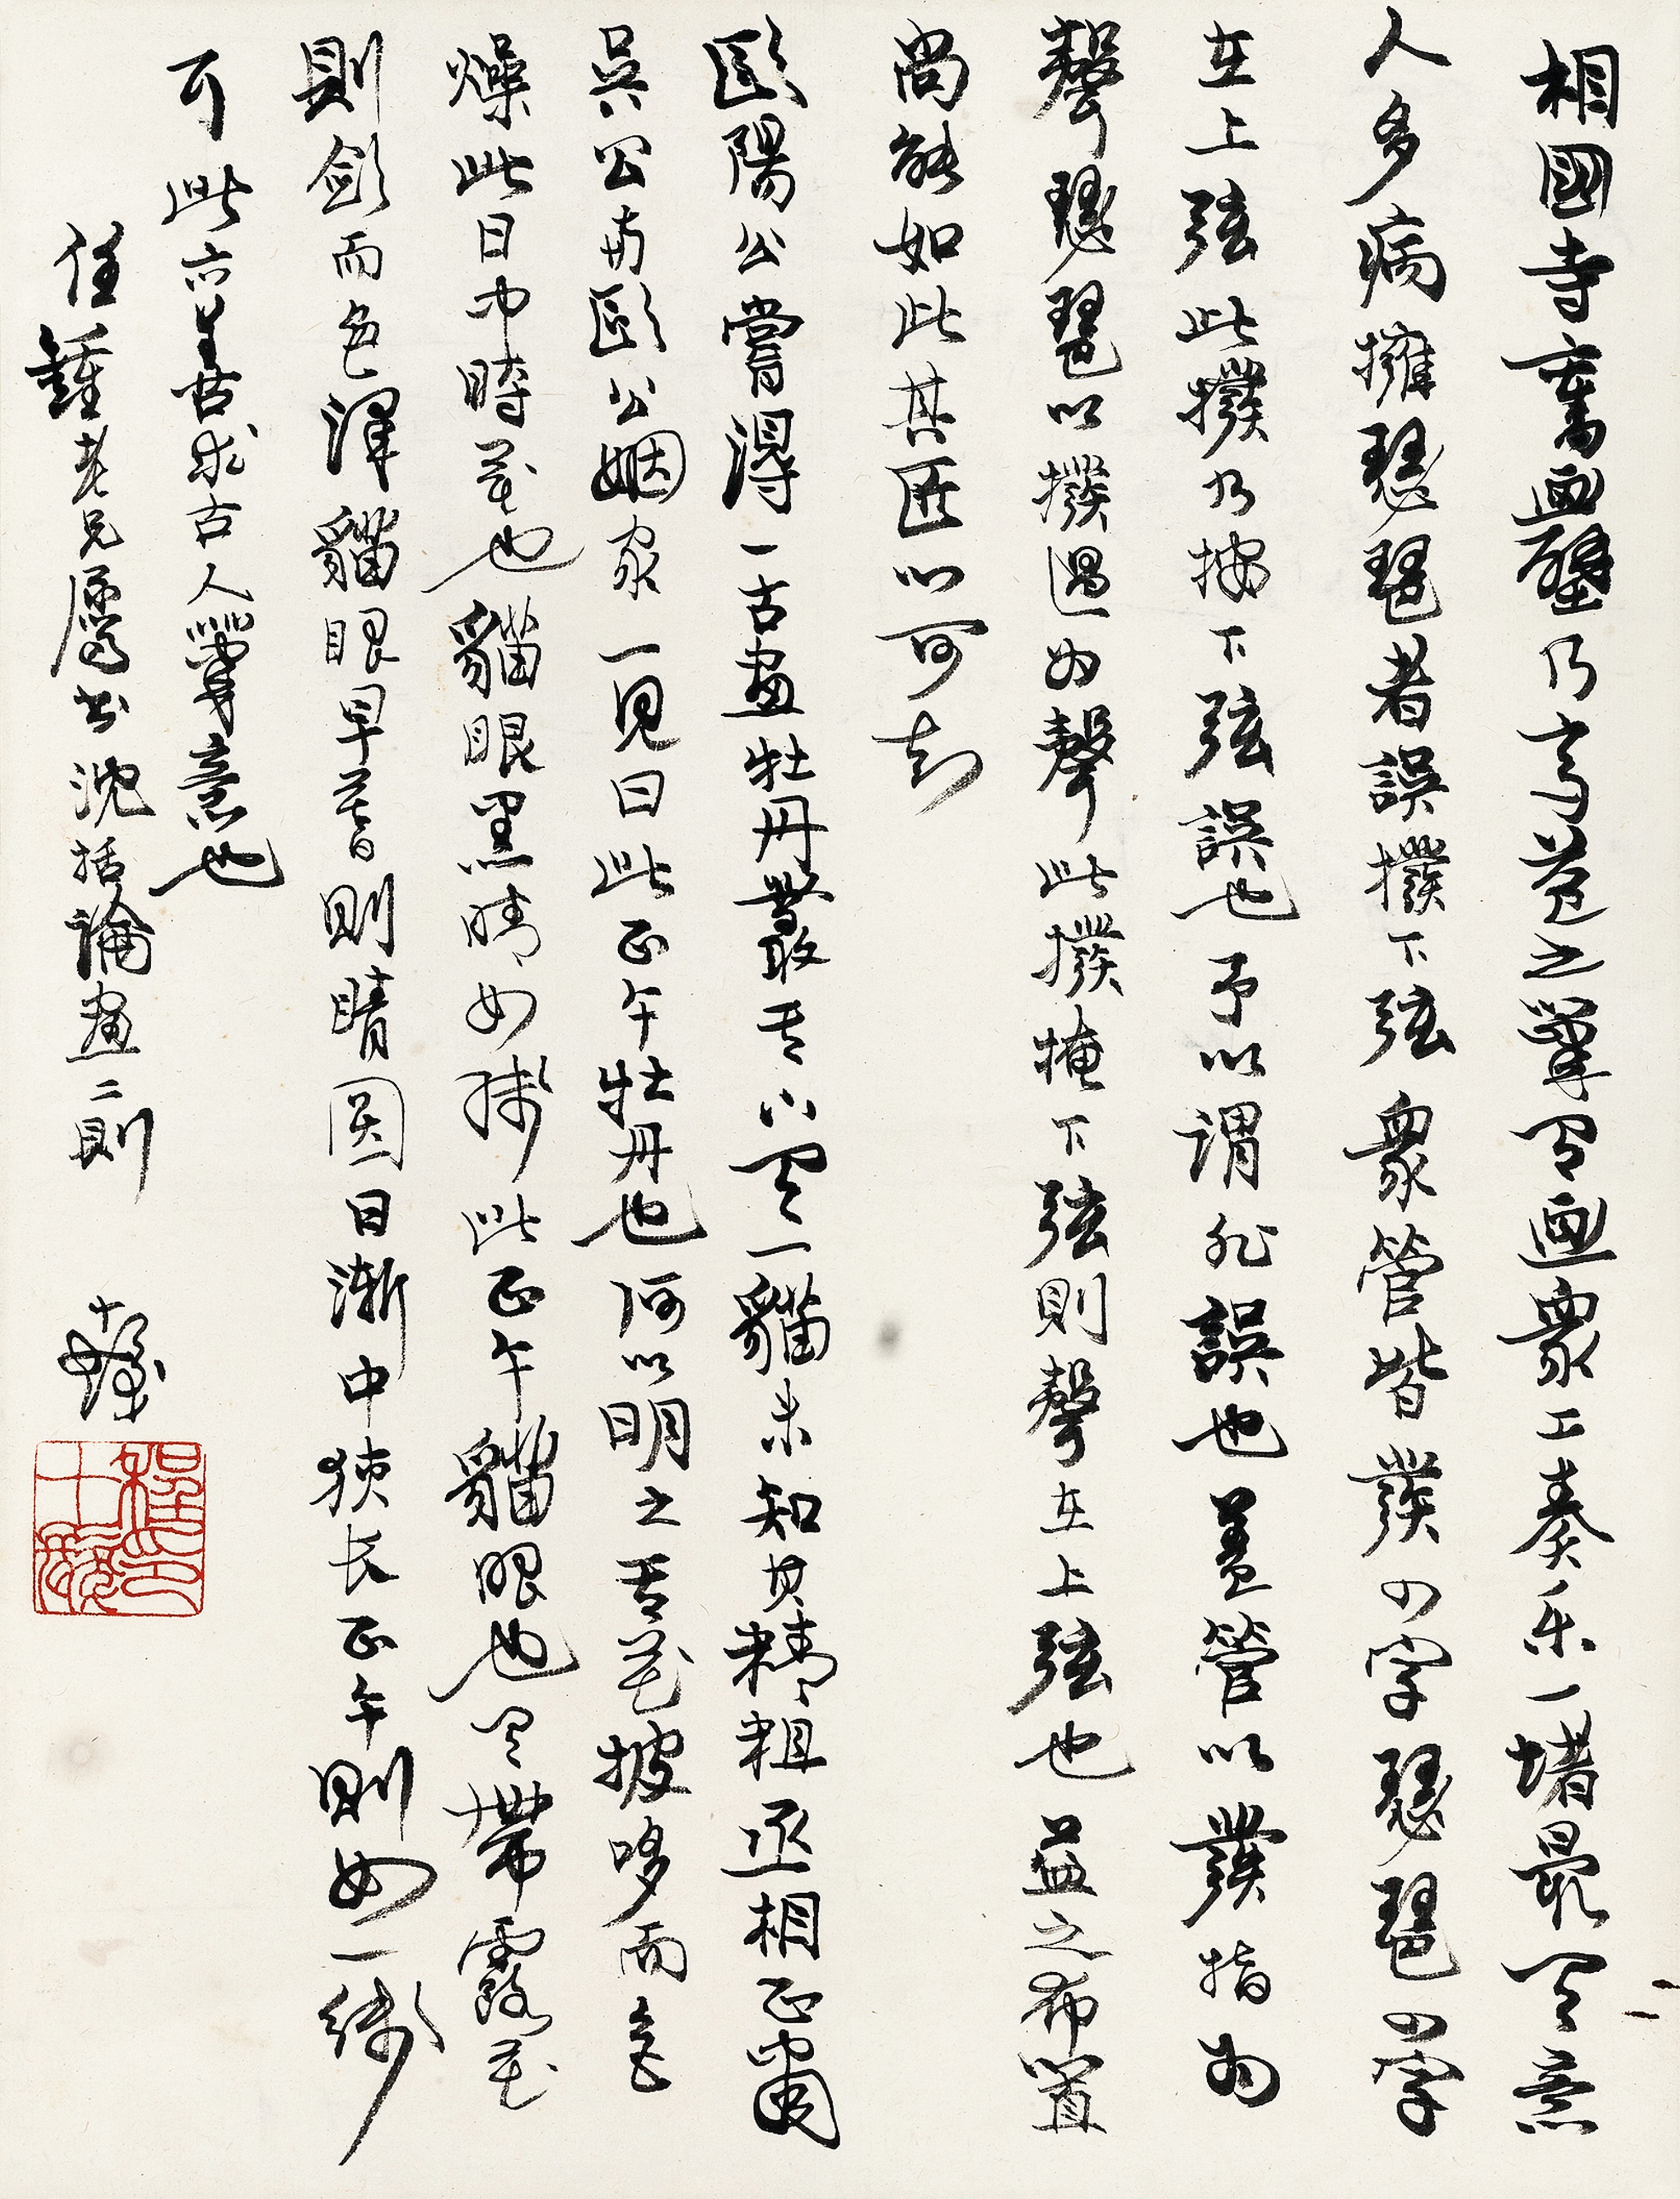 相國寺舊畫壁乃高益之筆有畫衆工奏樂一堵最有意
人多病擁琵琶者誤撥下弦衆管皆發四字琵琶四字
在上弦此撥乃掩下弦誤也予以謂非誤也蓋管以發指為
聲琵琶以撥過為聲此撥掩下弦則聲在上弦也益之布置
尚能如此其匠心可知
歐陽公嘗得一古畫牡丹叢其下有一貓未知其精粗丞相正肅
吳公與歐公姻家一見曰此正午牡丹也何以明之其花披哆而色
燥此日中時花也貓眼黑睛如線此正午貓眼也有帶露花
則斂而色澤貓眼早暮則睛圓日漸中狹長正午則如一線
耳此亦善求古人筆意也
任鍾老兄屬書沈括論畫二則
十髮
程十髮印